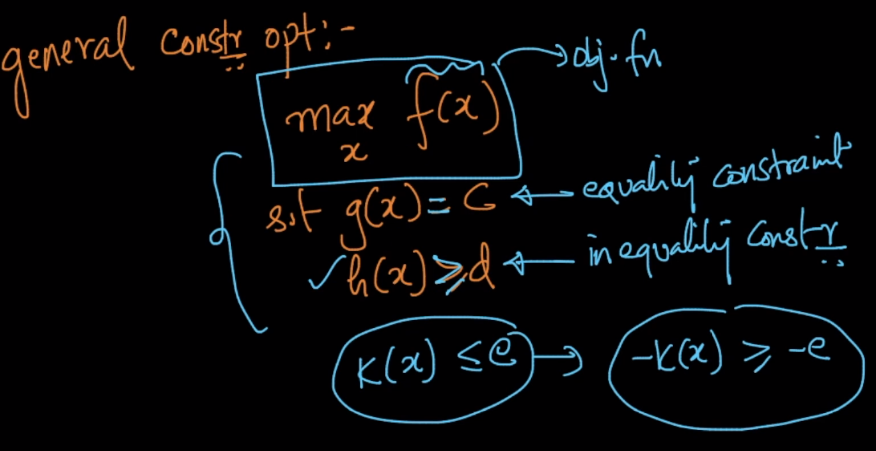 general constr opt:-
max f(x) → obj. fn
x
s.t g(x) = C ← equality constraint
✓ h(x) ≥ d ← inequality constr
K(x) ≤ e → -K(x) ≥ -e